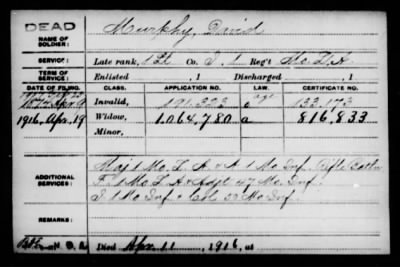 DEAD
NAME OF SOLDIER:
Murphy, David
SERVICE:
Late rank, 1 Lt Co. I, 1 Reg't Mo. L. A.
TERM OF SERVICE:
Enlisted , 1 Discharged , 1
DATE OF FILING. CLASS. APPLICATION NO. LAW. CERTIFICATE NO.
1874 Apr. 9 Invalid, 191.323 age 133.173
1916, Apr. 19 Widow, 1.064.780 a 816.833
Minor,
ADDITIONAL SERVICES:
Maj 1 Mo. L. A. & A 1 Mo Inf. Rifle Battn
F. 1 Mo L A & Adjt 47 Mo. Inf.
I 1 Mo Inf & Col 50 Mo Inf.
REMARKS:
Died Apr. 11, 1916, at